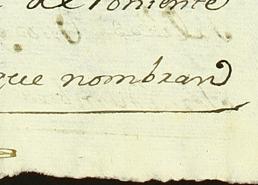 de Poniente
que nombran